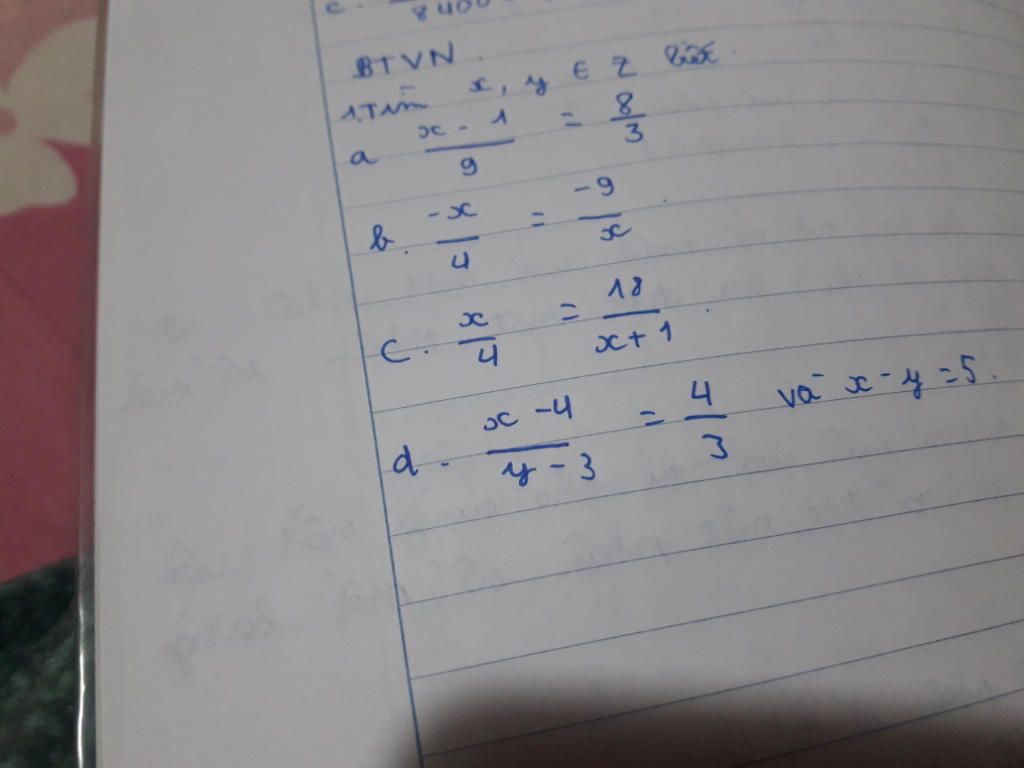 c. 8400
BTVN.
1.Tìm x, y ∈ Z biết.
a x - 1 / 9 = 8 / 3
b. -x / 4 = -9 / x.
c. x / 4 = 18 / x+1.
d. x - 4 / y - 3 = 4 / 3 và x - y = 5.